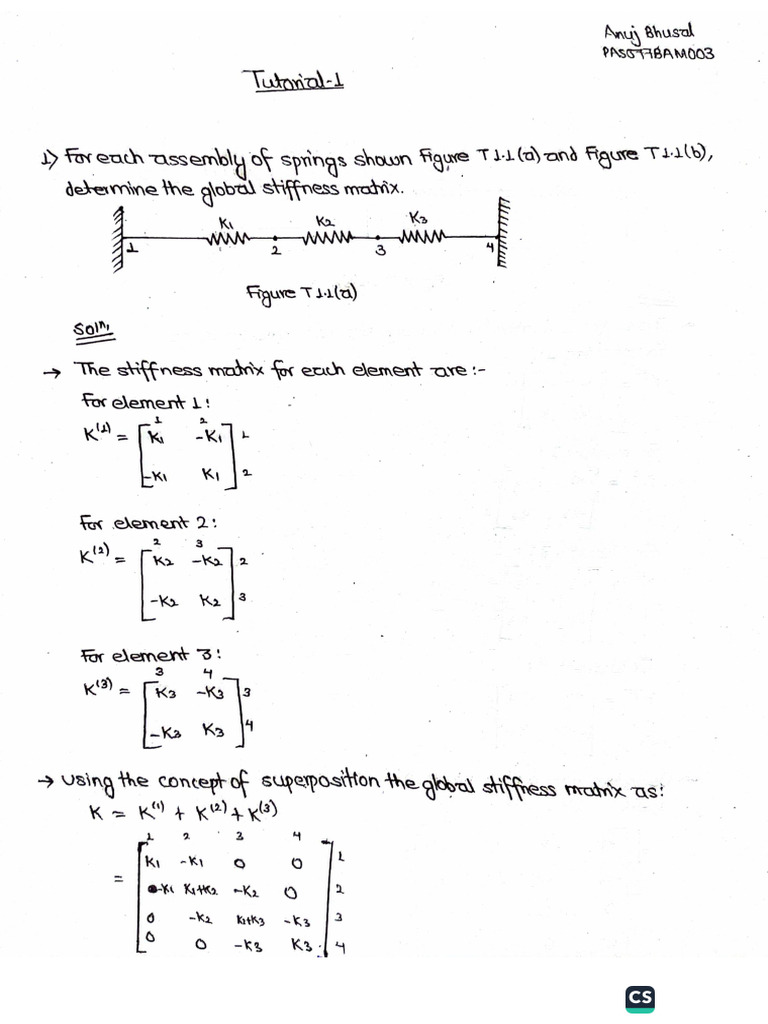 Anuj Bhusal
PAS077BAM003
Tutorial-1
1) For each assembly of springs shown Figure T1.1(a) and Figure T1.1(b),
determine the global stiffness matrix.
K1 K2 K3
1 2 3 4
Figure T1.1(a)
Solⁿ,
→ The stiffness matrix for each element are :-
For element 1:
1 2
K⁽¹⁾ = [ K1 -K1 ] 1
-K1 K1 2
For element 2:
2 3
K⁽²⁾ = [ K2 -K2 ] 2
-K2 K2 3
For element 3:
3 4
K⁽³⁾ = [ K3 -K3 ] 3
-K3 K3 4
→ Using the concept of superposition the global stiffness matrix as:
K = K⁽¹⁾ + K⁽²⁾ + K⁽³⁾
1 2 3 4
= [ K1 -K1 0 0 ] 1
-K1 K1+K2 -K2 0 2
0 -K2 K1+K3 -K3 3
0 0 -K3 K3 4
CS